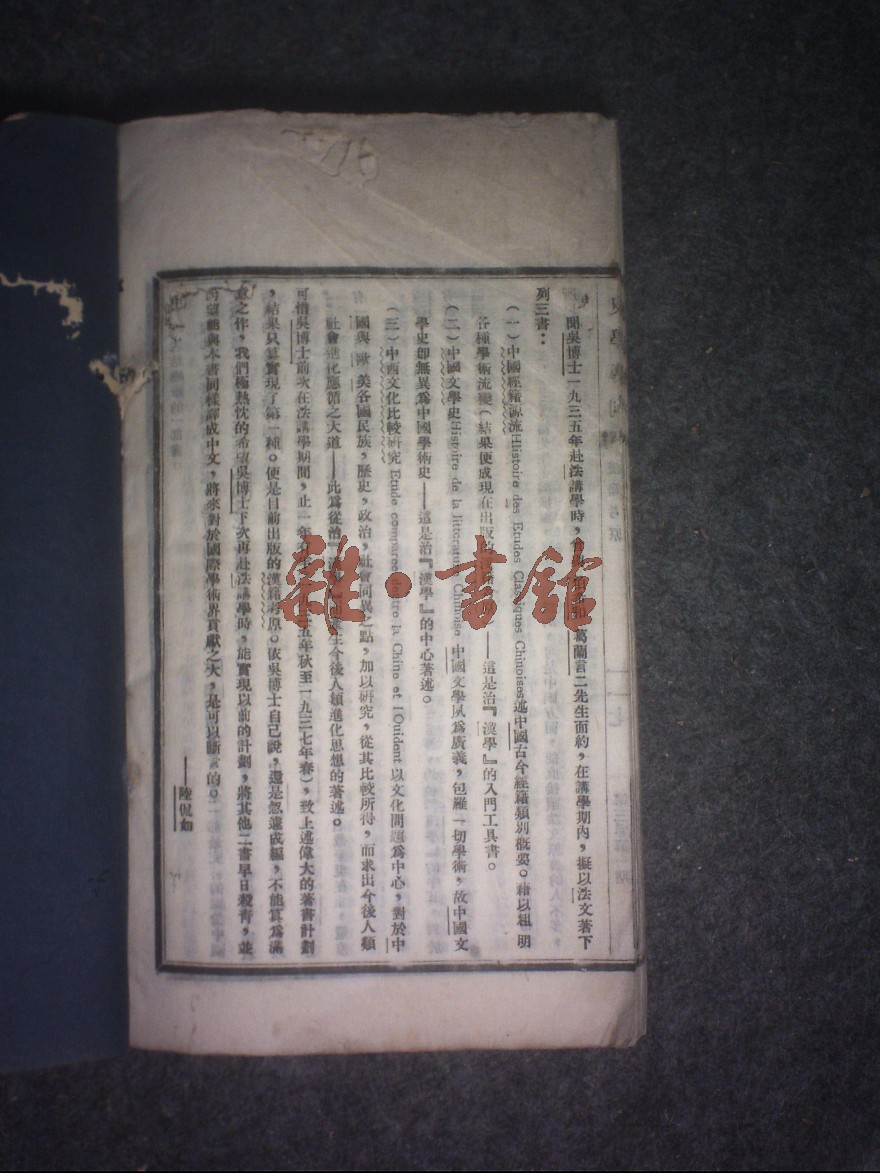 聞吳博士一九三五年赴法講學時，葛蘭言二先生面約，在講學期內，擬以法文著下
列三書：
（一）中國經籍源流Histoire des Etudes Classiques Chinoises述中國古今經籍類別概要。藉以粗明
各種學術流變（結果便成現在出版的——這是治『漢學』的入門工具書。
（二）中國文學史Histoire de la litterature Chinoise 中國文學夙爲廣義，包羅一切學術，故中國文
學史卽無異爲中國學術史——這是治『漢學』的中心著述。
（三）中西文化比較硏究 Etude comparee entre la Chine et l'Ouident 以文化問題爲中心，對於中
國與歐美各國民族，歷史，政治，社會同異之點，加以硏究，從其比較所得，而求出今後人類
社會進化應循之大道——此爲從治『漢學』產生今後人類進化思想的著述。
可惜吳博士前次在法講學期間，止一年五年秋至一九三七年春），致上述偉大的著書計劃
，結果只算實現了第一種。便是目前出版的漢籍考原。依吳博士自己說，還是怱遽成編，不能算爲滿
意之作，我們極熱忱的希望吳博士下次再赴法講學時，能實現以前的計劃，將其他二書早日殺靑，並
希望能與本書同樣譯成中文，將來對於國際學術界貢獻之大，是可以斷言的。
——陸侃如
雜·書館